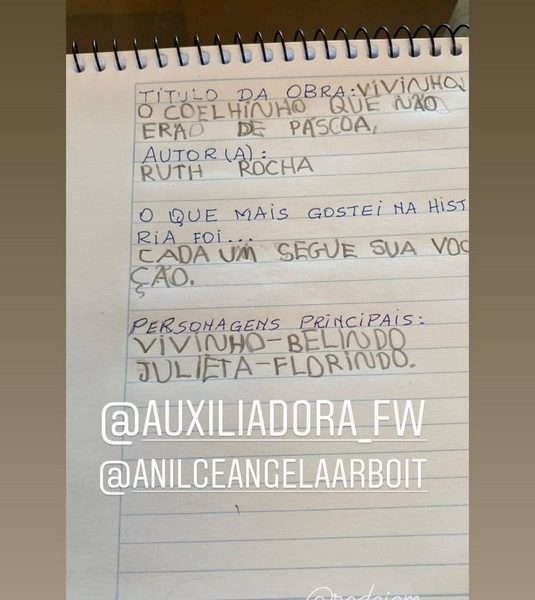 TÍTULO DA OBRA: VIVINHO,
O COELHINHO QUE NÃO
ERAO DE PÁSCOA,
AUTOR(A):
RUTH ROCHA
O QUE MAIS GOSTEI NA HIST
RIA FOI...
CADA UM SEGUE SUA VOC
ÇÃO.
PERSONAGENS PRINCIPAIS:
VIVINHO-BELINDO
JULIETA-FLORINDO.
@AUXILIADORA_FW
@ANILCEANGELAARBOIT